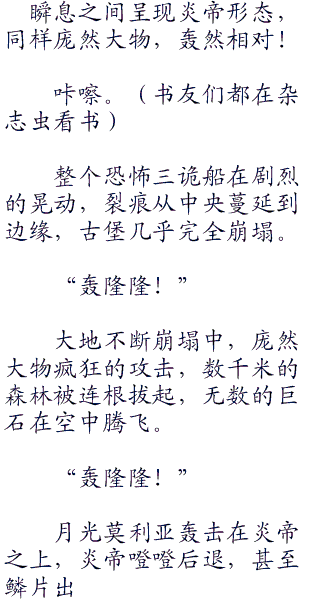 瞬息之间呈现炎帝形态，
同样庞然大物，轰然相对！
咔嚓。（书友们都在杂
志虫看书）
整个恐怖三诡船在剧烈
的晃动，裂痕从中央蔓延到
边缘，古堡几乎完全崩塌。
“轰隆隆！”
大地不断崩塌中，庞然
大物疯狂的攻击，数千米的
森林被连根拔起，无数的巨
石在空中腾飞。
“轰隆隆！”
月光莫利亚轰击在炎帝
之上，炎帝噔噔后退，甚至
鳞片出